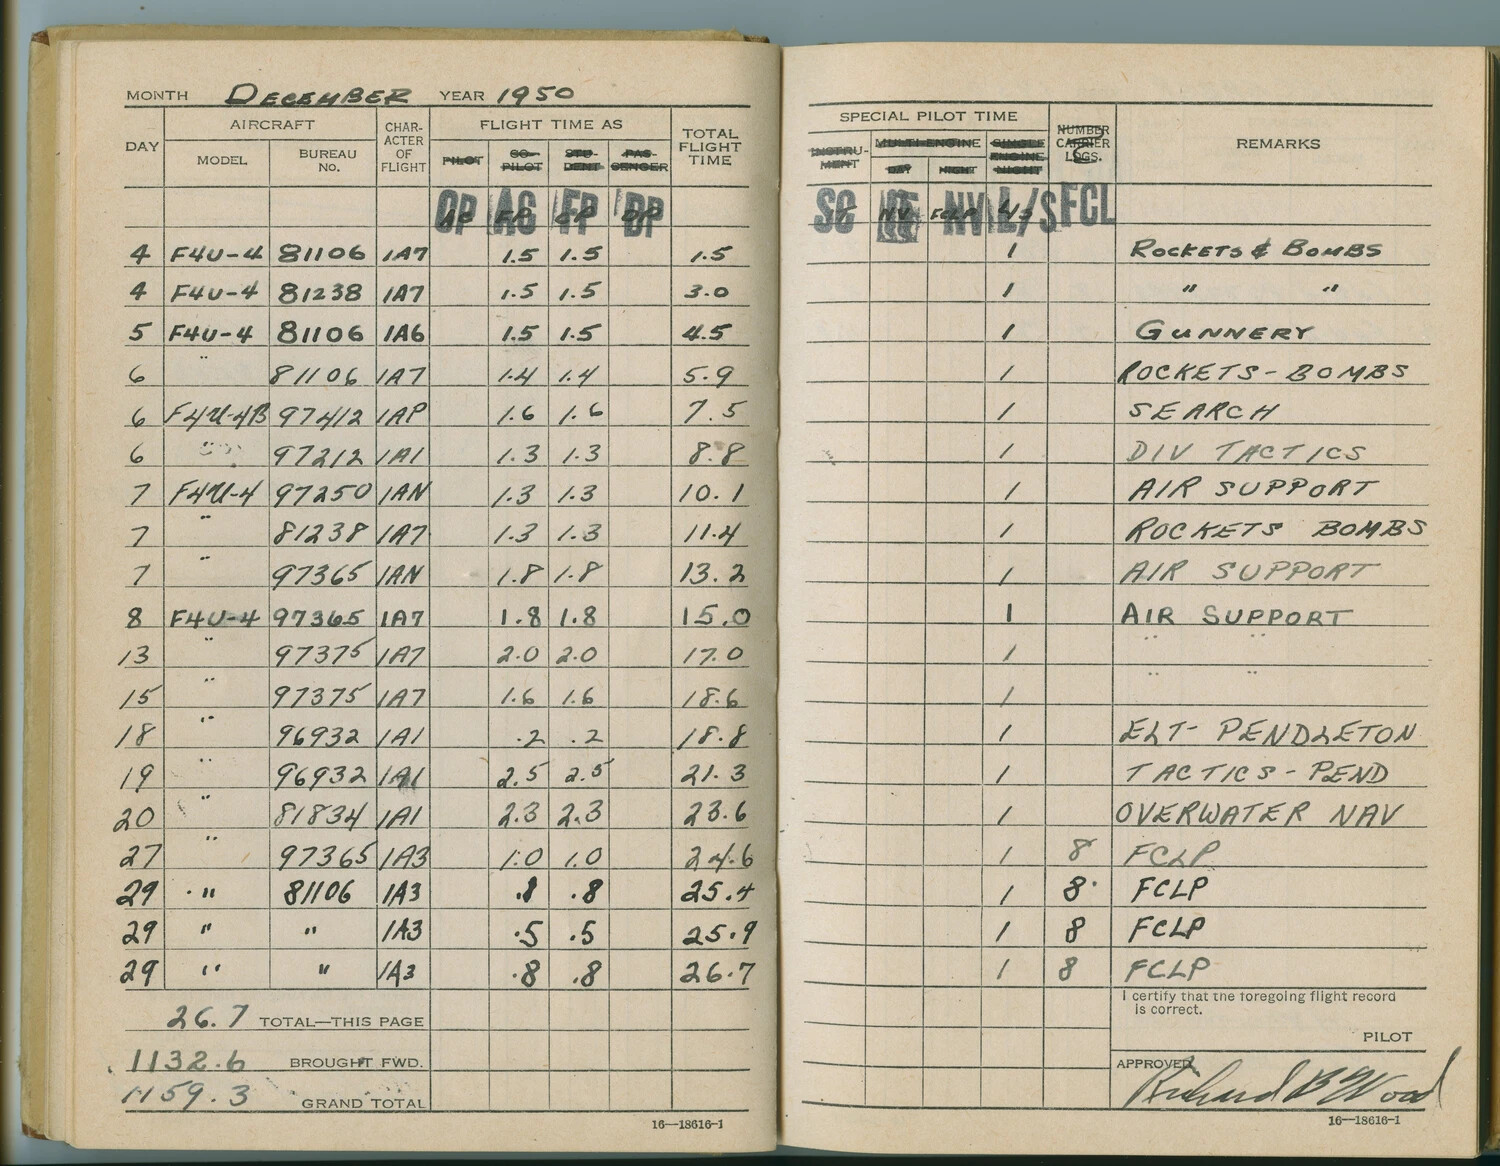 MONTH DECEMBER YEAR 1950
DAY AIRCRAFT CHAR-ACTER OF FLIGHT FLIGHT TIME AS TOTAL FLIGHT TIME
MODEL BUREAU No. PILOT CO-PILOT STU-DENT PAS-SENGER
CP AC FP DP
4 F4U-4 81106 1A7 1.5 1.5 1.5
4 F4U-4 81238 1A7 1.5 1.5 3.0
5 F4U-4 81106 1A6 1.5 1.5 4.5
6 " 81106 1A7 1.4 1.4 5.9
6 F4U-4B 97412 1AP 1.6 1.6 7.5
6 " 97212 1A1 1.3 1.3 8.8
7 F4U-4 97250 1AN 1.3 1.3 10.1
7 " 81238 1A7 1.3 1.3 11.4
7 " 97365 1AN 1.8 1.8 13.2
8 F4U-4 97365 1A7 1.8 1.8 15.0
13 " 97375 1A7 2.0 2.0 17.0
15 " 97375 1A7 1.6 1.6 18.6
18 " 96932 1A1 .2 .2 18.8
19 " 96932 1A1 2.5 2.5 21.3
20 " 81834 1A1 2.3 2.3 23.6
27 " 97365 1A3 1.0 1.0 24.6
29 " 81106 1A3 .8 25.4
29 " " 1A3 .5 .5 25.9
29 " " 1A3 .8 .8 26.7
26.7 TOTAL—THIS PAGE
1132.6 BROUGHT FWD.
1159.3 GRAND TOTAL
16—18616-1
SPECIAL PILOT TIME NUMBER CARRIER LDGS. REMARKS
INSTRU-MENT MULTI-ENGINE SINGLE ENGINE NIGHT
DAY NIGHT
SC NV L/S FCL
1 ROCKETS & BOMBS
1 " "
1 GUNNERY
1 ROCKETS - BOMBS
1 SEARCH
1 DIV TACTICS
1 AIR SUPPORT
1 ROCKETS BOMBS
1 AIR SUPPORT
1 AIR SUPPORT
1 " "
1 " "
1 ELT- PENDLETON
1 TACTICS - PEND
1 OVERWATER NAV
1 8 FCLP
1 8 FCLP
1 8 FCLP
1 8 FCLP
I certify that the foregoing flight record
is correct.
PILOT
APPROVED
Richard B Wood
16—18616-1